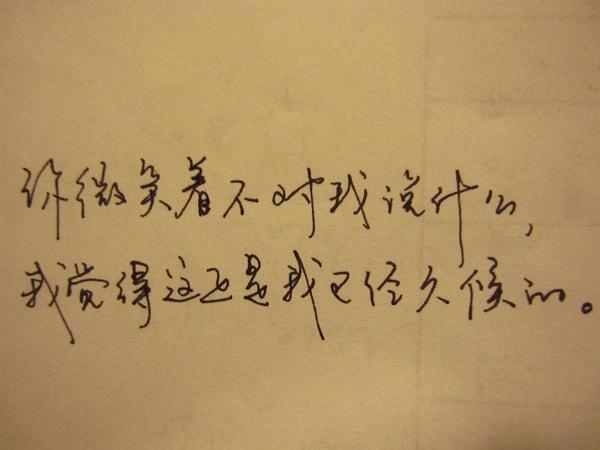 你微笑着不对我说什么,
我觉得这也是我已经久候的。